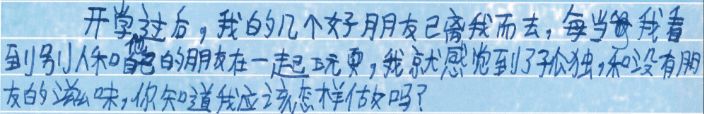 开学过后，我的几个好朋友已离我而去，每当我看
到别人和他的朋友在一起玩更，我就感觉到了孤独，和没有朋
友的滋味，你知道我应该怎样做吗？